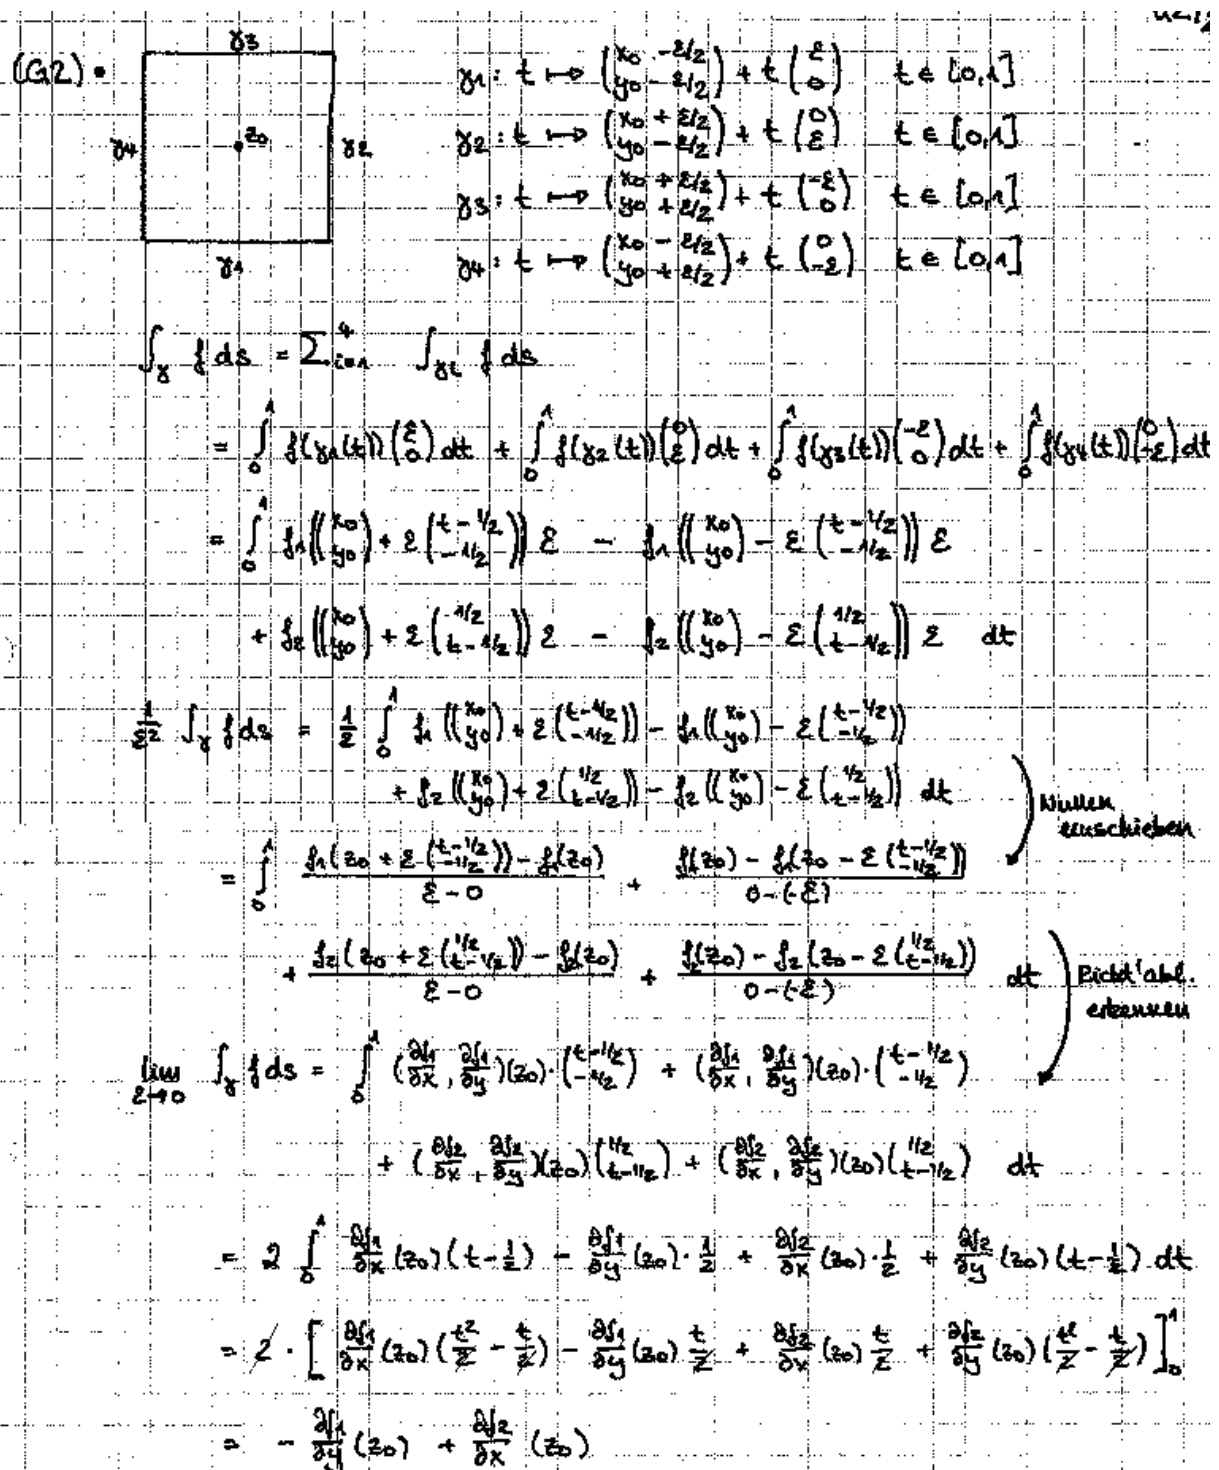 (G2) •
γ3
γ4 z₀ γ2
γ1
γ1: t ↦ (x₀ - ε/2 ; y₀ - ε/2) + t (ε ; 0) t ∈ [0,1]
γ2: t ↦ (x₀ + ε/2 ; y₀ - ε/2) + t (0 ; ε) t ∈ [0,1]
γ3: t ↦ (x₀ + ε/2 ; y₀ + ε/2) + t (-ε ; 0) t ∈ [0,1]
γ4: t ↦ (x₀ - ε/2 ; y₀ + ε/2) + t (0 ; -ε) t ∈ [0,1]
∫_γ f ds = Σ_{i=1}^4 ∫_{γi} f ds
= ∫₀¹ f(γ1(t)) (ε ; 0) dt + ∫₀¹ f(γ2(t)) (0 ; ε) dt + ∫₀¹ f(γ3(t)) (-ε ; 0) dt + ∫₀¹ f(γ4(t)) (0 ; -ε) dt
= ∫₀¹ f₁((x₀ ; y₀) + ε (t - 1/2 ; -1/2)) ε - f₁((x₀ ; y₀) - ε (t - 1/2 ; -1/2)) ε
+ f₂((x₀ ; y₀) + ε (1/2 ; t - 1/2)) ε - f₂((x₀ ; y₀) - ε (1/2 ; t - 1/2)) ε dt
1/ε² ∫_γ f ds = 1/ε ∫₀¹ f₁((x₀ ; y₀) + ε (t - 1/2 ; -1/2)) - f₁((x₀ ; y₀) - ε (t - 1/2 ; -1/2))
+ f₂((x₀ ; y₀) + ε (1/2 ; t - 1/2)) - f₂((x₀ ; y₀) - ε (1/2 ; t - 1/2)) dt
Nullen
einschieben
= ∫₀¹ (f₁(z₀ + ε (t - 1/2 ; -1/2)) - f₁(z₀)) / (ε - 0) + (f₁(z₀) - f₁(z₀ - ε (t - 1/2 ; -1/2))) / (0 - (-ε))
+ (f₂(z₀ + ε (1/2 ; t - 1/2)) - f₂(z₀)) / (ε - 0) + (f₂(z₀) - f₂(z₀ - ε (1/2 ; t - 1/2))) / (0 - (-ε)) dt
Richt'abl.
erkennen
lim_{ε→0} ∫_γ f ds = ∫₀¹ (∂f₁/∂x, ∂f₁/∂y)(z₀) · (t - 1/2 ; -1/2) + (∂f₁/∂x, ∂f₁/∂y)(z₀) · (t - 1/2 ; -1/2)
+ (∂f₂/∂x, ∂f₂/∂y)(z₀) (1/2 ; t - 1/2) + (∂f₂/∂x, ∂f₂/∂y)(z₀) (1/2 ; t - 1/2) dt
= 2 ∫₀¹ ∂f₁/∂x (z₀) (t - 1/2) - ∂f₁/∂y (z₀) · 1/2 + ∂f₂/∂x (z₀) · 1/2 + ∂f₂/∂y (z₀) (t - 1/2) dt
= 2 · [ ∂f₁/∂x (z₀) (t²/2 - t/2) - ∂f₁/∂y (z₀) t/2 + ∂f₂/∂x (z₀) t/2 + ∂f₂/∂y (z₀) (t²/2 - t/2) ]₀¹
= - ∂f₁/∂y (z₀) + ∂f₂/∂x (z₀)